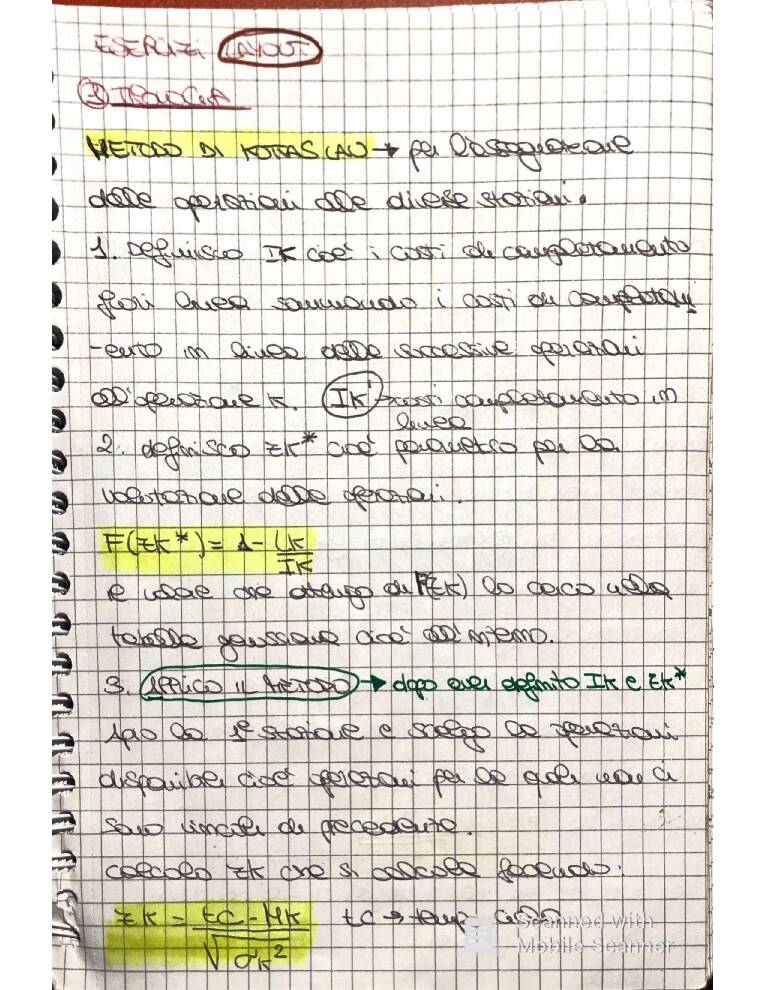 ESERCIZI LAYOUT
① TIPOLOGIA
METODO DI KOTTAS LAU → per l'assegnazione
delle operazioni alle diverse stazioni.
1. Definisco IK cioè i costi di completamento
fuori linea sommando i costi di completam
-ento in linea delle successive operazioni
all'operazione K. IK' → costi completamento in
linea
2. definisco ZK* cioè parametro per la
valutazione delle operazioni.
F(ZK*) = 1 - LK/IK
e valore che ottengo di F(ZK) lo cerco nella
tabella gaussiana cioè all'interno.
3. APPLICO IL METODO → dopo aver definito IK e ZK*
Apro la 1ª stazione e scelgo le operazioni
disponibili cioè operazioni per le quali non ci
sono vincoli di precedenza.
calcolo ZK che si calcola facendo:
ZK = tc - μK / √σK² tc → tempo ciclo
Scanned with
Mobile Scanner